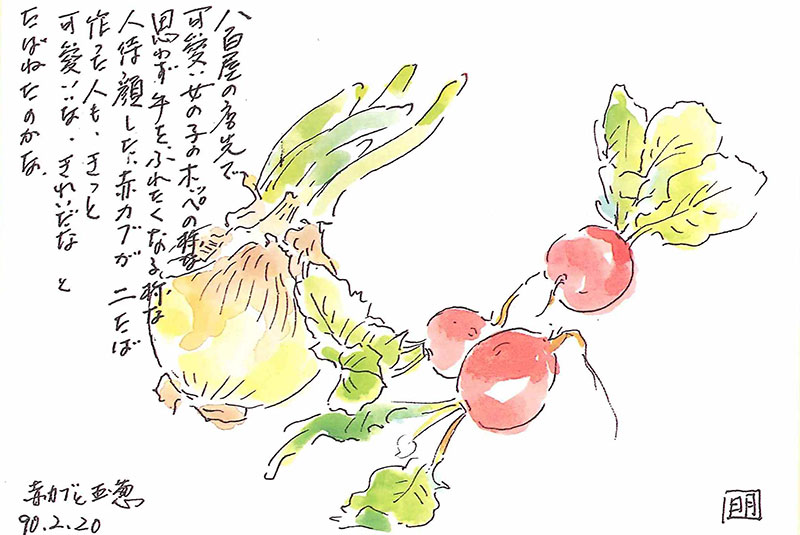 八百屋の店先で
可愛い女の子のホッペの様な
思わず手をふれたくなる様な
人待顔した赤カブが二たば
作った人も、きっと
可愛いな・きれいだな と
たばねたのかな、
赤カブと玉葱
90.2.20
明